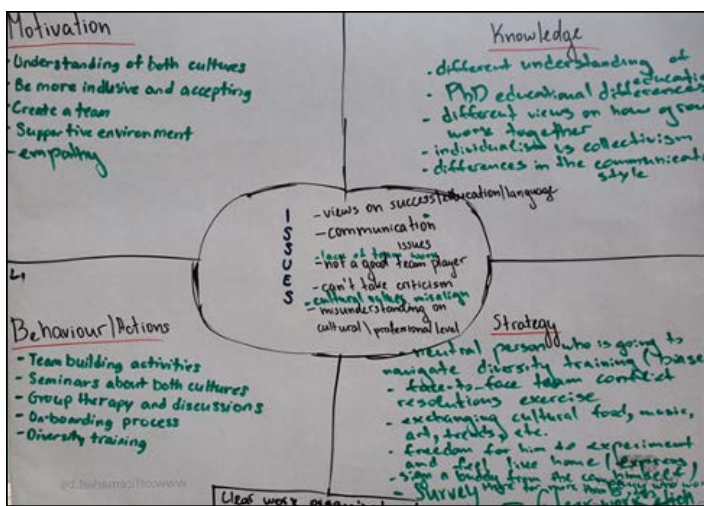 Motivation
- Understanding of both cultures
- Be more inclusive and accepting
- Create a team
- Supportive environment
- empathy
Knowledge
- different understanding of
education
- PhD educational differences
- different views on how group
work together
- individualism vs collectivism
- differences in the communication
style
ISSUES
- views on success/education/language
- communication
issues
- lack of team work
- not a good team player
- can't take criticism
- cultural values misalign
- misunderstanding on
cultural\professional level
Behaviour/Actions
- Team building activities
- Seminars about both cultures
- Group therapy and discussions
- On-boarding process
- Diversity training
Strategy
- neutral person who is going to
navigate diversity training (biases
- face-to-face team conflict
resolutions exercise
- exchanging cultural food, music,
art, trends, etc.
- freedom for him to experiment
and feel like home (express
himself)
- sign a buddy from the company who
- Survey
Clear work
www.officemarket.bg